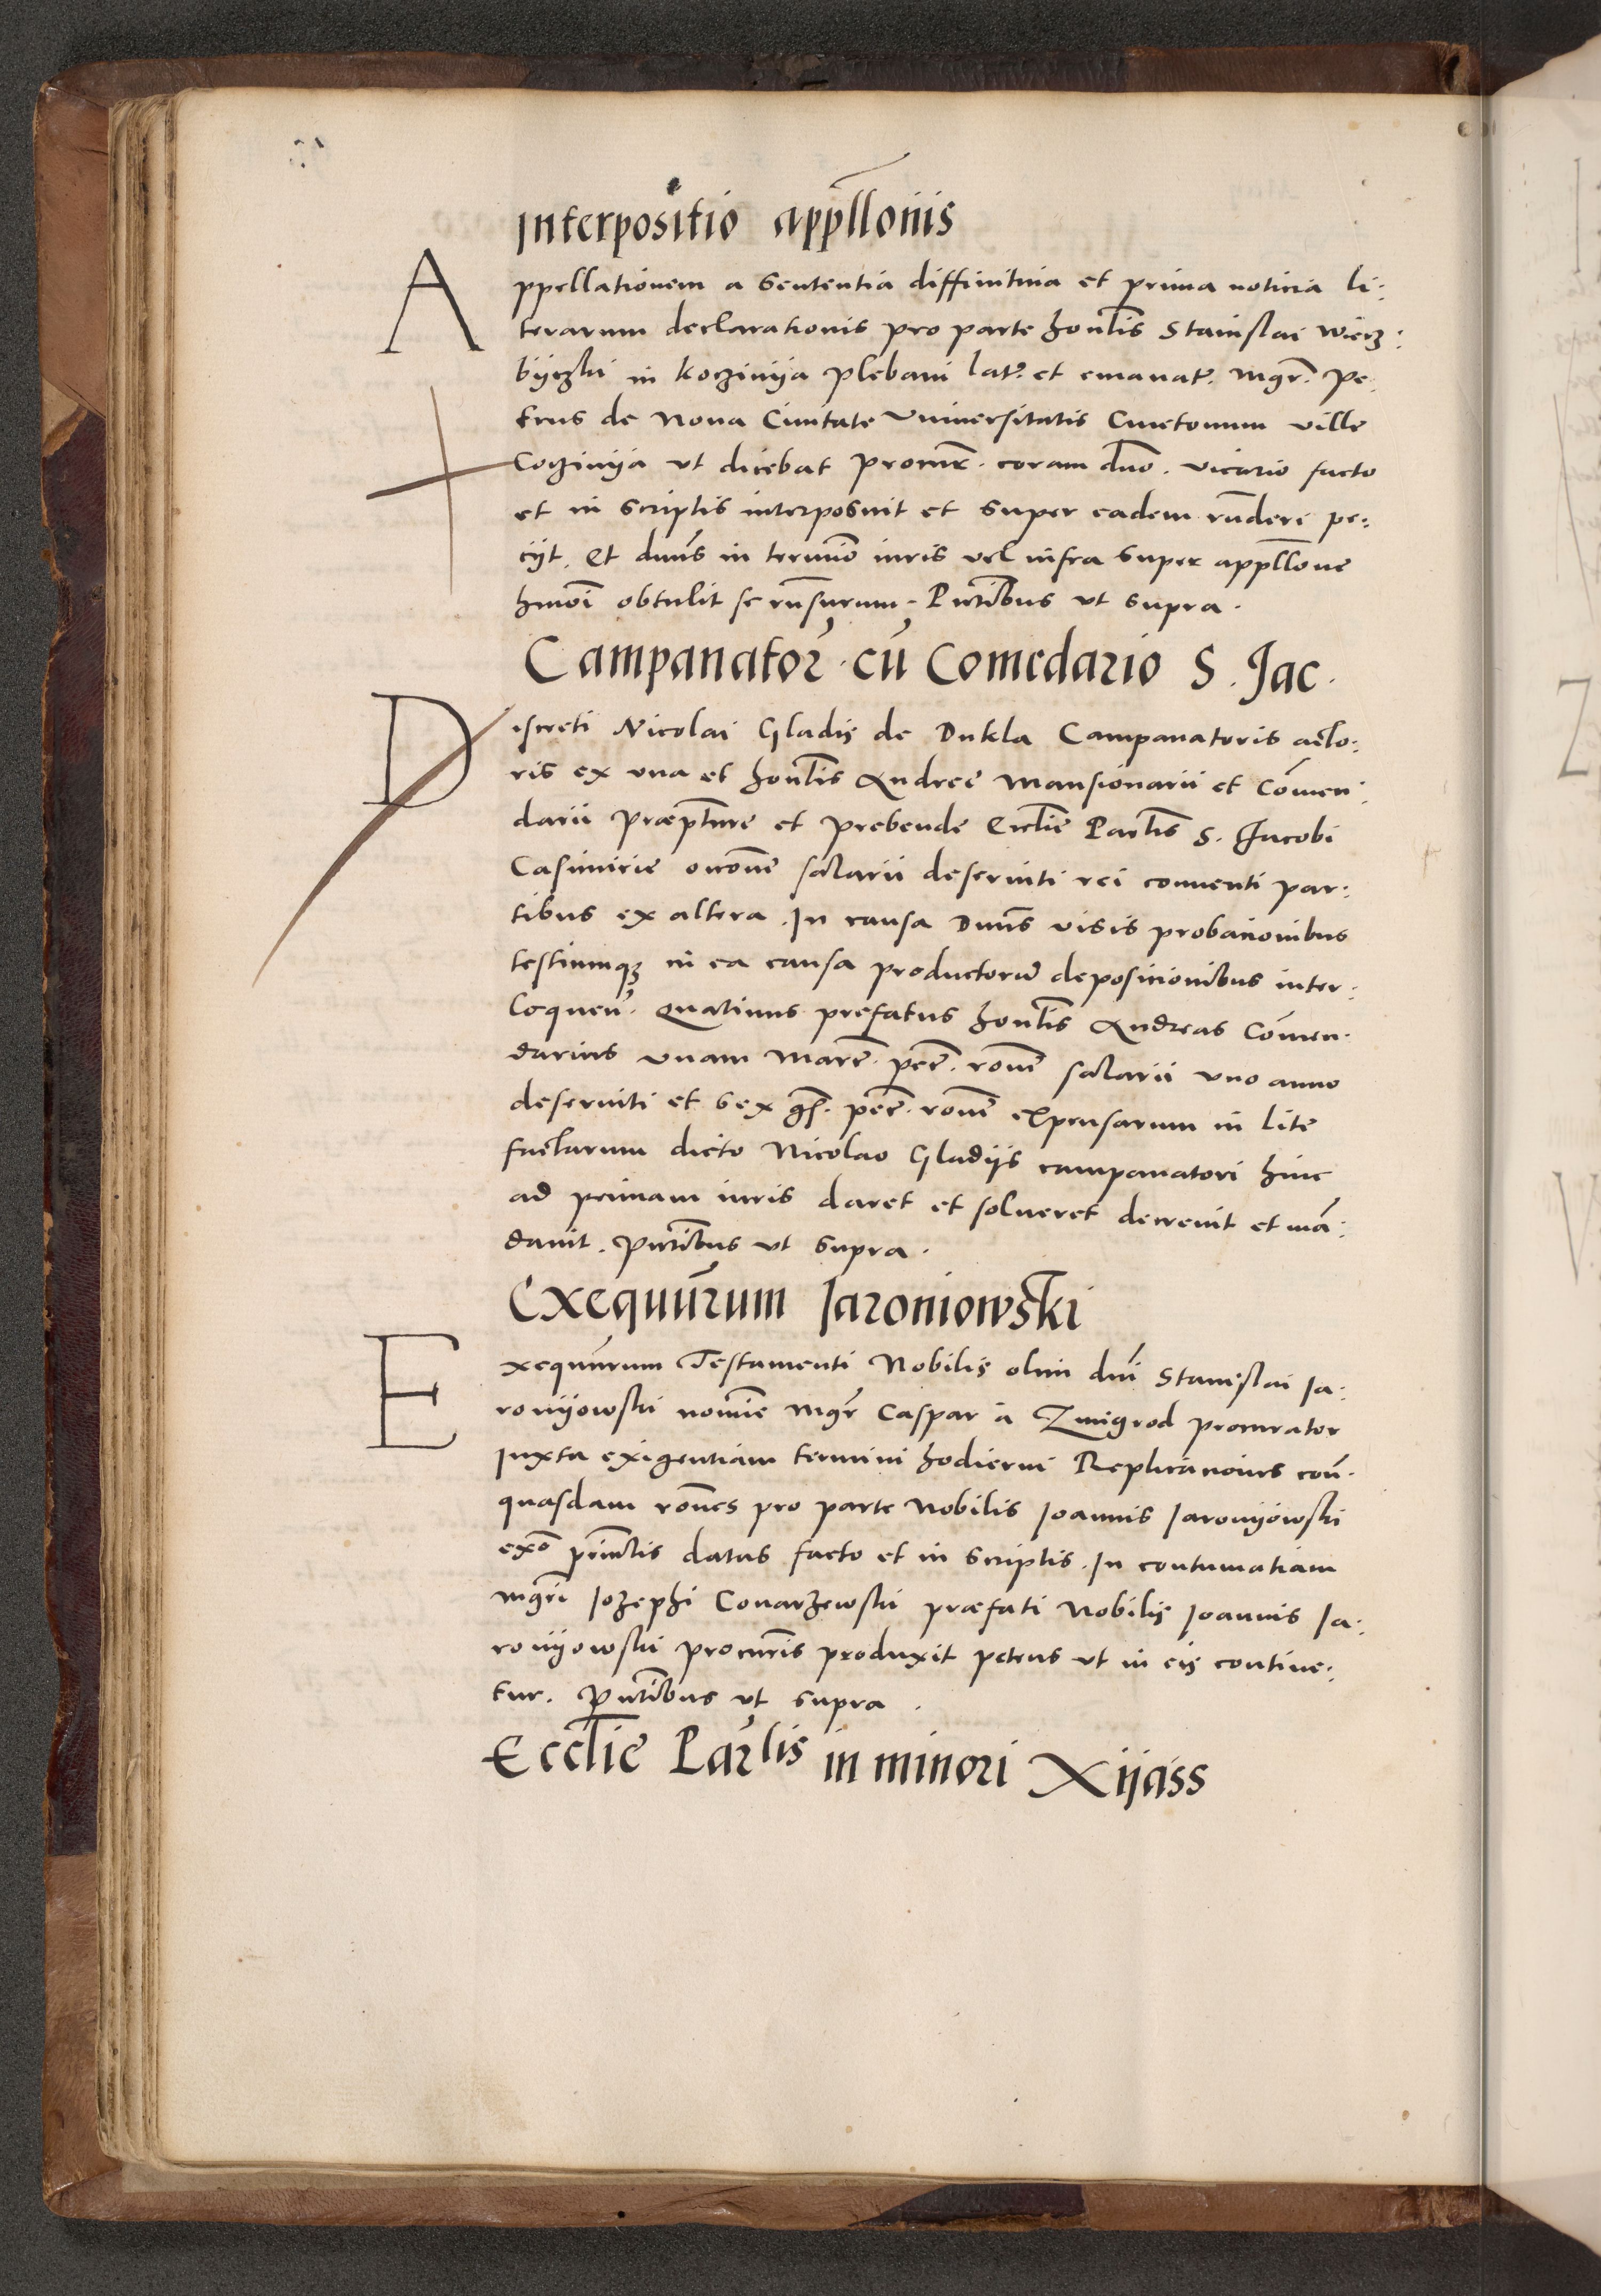 Interpositio appllonis
Appellationem a sententia diffinitiva et prima noticia li:
terarum declarationis pro parte honlis Stanislai Wierz:
bijczki in Koczinija plebani lat. et emanat. Mgr. Pe:
trus de Nova Civitate Universitatis Cmetonum ville
Coczinija ut dicebat Procur. coram dno. vicario facto
et in scriptis interposuit et super eadem rnderi pe:
cijt. Et dnus in termio iuris vel infra super appllone
hmoi obtulit se rnsurum. Pntibus ut supra.
Campanator. cu Comedario S. Jac.
Discreti Nicolai Gladis de Dukla Campanatoris acto:
ris ex una et honlis Andree Mansionarii et Comen:
darii præpture et prebende Ecclie Parlis S. Jacobi
Casimirie occone salarii deserviti rei conventi par:
tibus ex altera. In causa Dnus visis probacionibus
testiumqz in ea causa productoru deposicionibus inter:
loquen. Quatinus prefatus honlis Andreas Comen:
darius unam Marc. pec. rone salarii uno anno
deserviti et sex gs. pec. rone expensarum in lite
factarum dicto Nicolao Gladijs campanatori hinc
ad primam iuris daret et solveret decrevit et ma:
davit. Pntibus ut supra.
Exequurum Jaroniowski
Exequurum Testamenti Nobilis olim dni Stanislai Ja:
ronijowski nomie Mgr Caspar a Zmigrod procurator
iuxta exigentiam termini hodierni Replicacionis con.
quasdam rones pro parte Nobilis Joannis Jaronijowski
exo prinlis datas facto et in scriptis. In contumatiam
Mgri Jozephi Conarzewski præfati Nobilis Joannis Ja:
ronijowski procuris produxit petens ut in eis contine:
tur. Pntibus ut supra.
Ecclie Parlis in minori Xijass